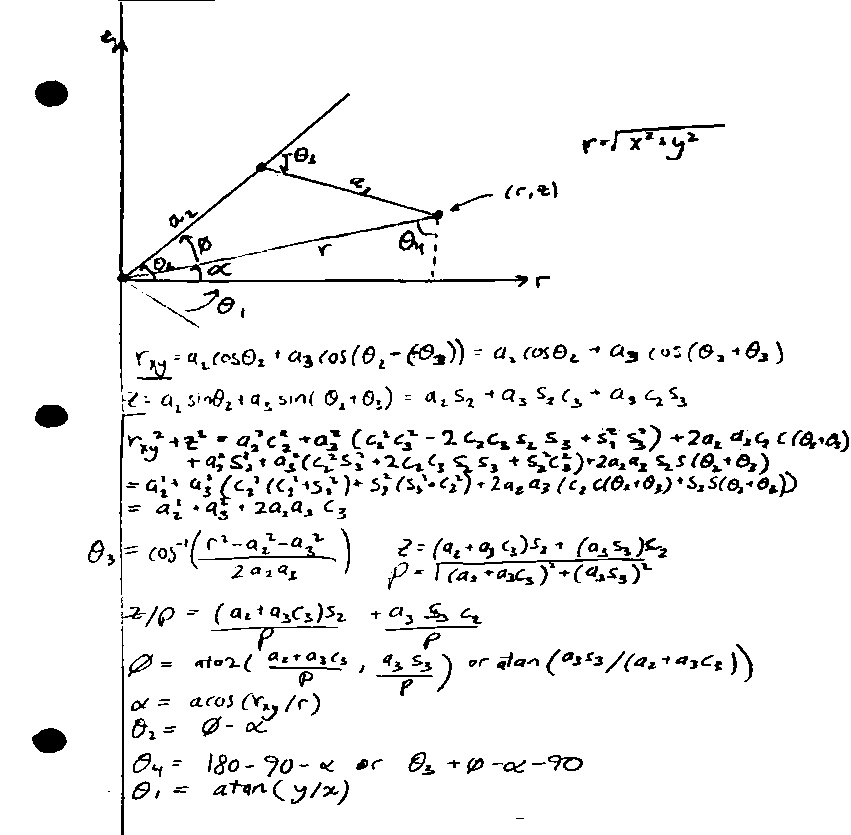 z
r = √x² + y²
θ₃
a₃
(r, z)
a₂
φ
θ₂
α
r
θ₄
r
θ₁
r_xy = a₂ cosθ₂ + a₃ cos(θ₂ - (-θ₃)) = a₂ cosθ₂ + a₃ cos(θ₂ + θ₃)
z = a₂ sinθ₂ + a₃ sin(θ₂ + θ₃) = a₂ s₂ + a₃ s₂ c₃ + a₃ c₂ s₃
r_xy² + z² = a₂² c₂² + a₃² (c₂² c₃² - 2 c₂ c₃ s₂ s₃ + s₂² s₃²) + 2a₂ a₃ c₂ c(θ₂+θ₃)
+ a₂² s₂² + a₃² (c₂² s₃² + 2 c₂ c₃ s₂ s₃ + s₂² c₃²) + 2a₂ a₃ s₂ s(θ₂+θ₃)
= a₂² + a₃² (c₂² (c₃² + s₃²) + s₂² (s₃² + c₃²) + 2a₂ a₃ (c₂ c(θ₂+θ₃) + s₂ s(θ₂+θ₃))
= a₂² + a₃² + 2a₂ a₃ c₃
θ₃ = cos⁻¹( (r² - a₂² - a₃²) / (2 a₂ a₃) ) z = (a₂ + a₃ c₃) s₂ + (a₃ s₃) c₂
ρ = √(a₂ + a₃c₃)² + (a₃s₃)²
z/ρ = (a₂ + a₃c₃)s₂ / ρ + a₃ s₃ c₂ / ρ
φ = atan2( (a₂+a₃c₃)/ρ , (a₃ s₃)/ρ ) or atan(a₃s₃/(a₂ + a₃c₃))
α = acos(r_xy/r)
θ₂ = φ - α
θ₄ = 180 - 90 - α or θ₃ + φ - α - 90
θ₁ = atan(y/x)